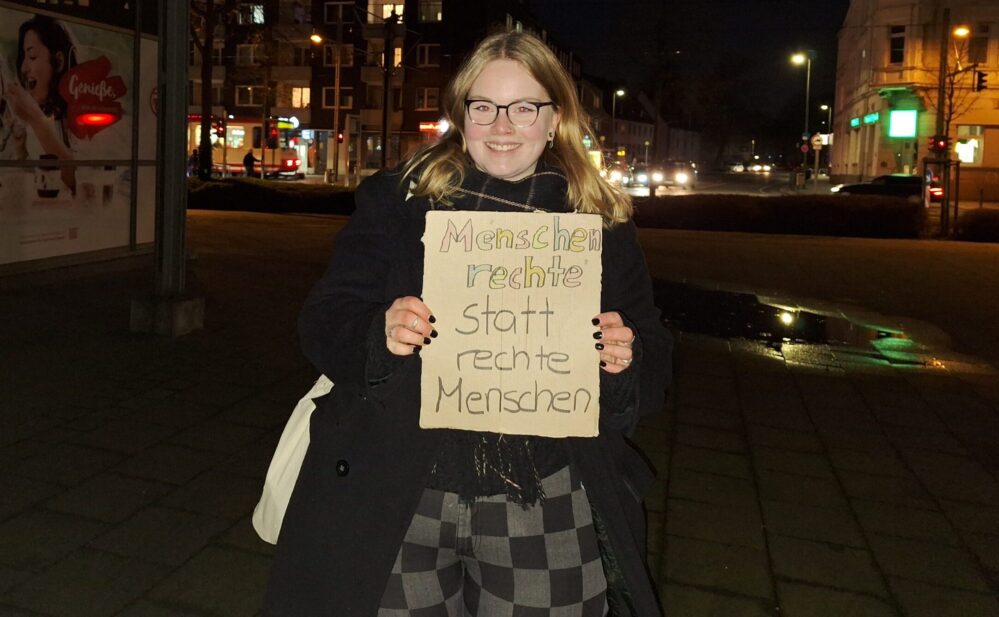 Genieße,
Menschen
rechte
Statt
rechte
Menschen